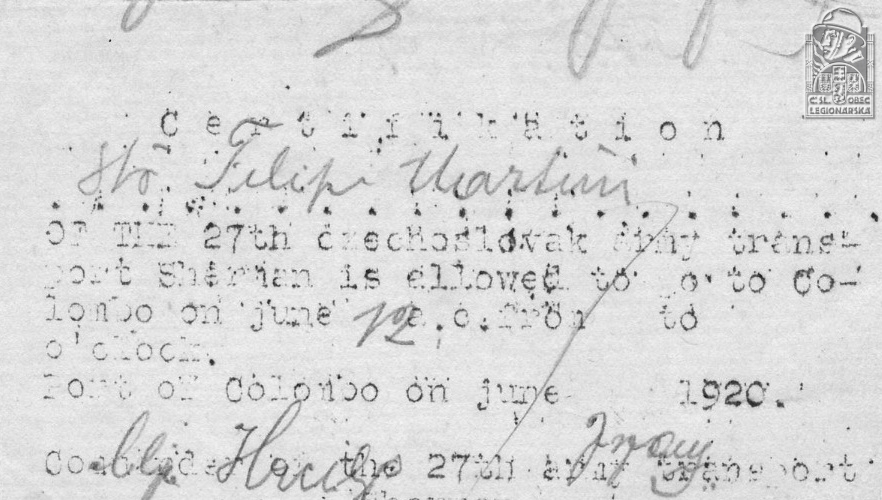 ČSL. OBEC
LEGIONÁŘSKÁ
Certifikation
Filip Martini
OF THE 27th czechoslovak army trans-
port Sherman is allowed to go to Co-
lombo on june 12. a.c. from to
o'clock.
Port of Colombo on june 1920.
of the 27th army transport